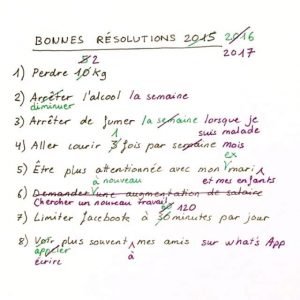 BONNES RÉSOLUTIONS 2015 2016
2017
8 2
1) Perdre 10 kg
2) Arrêter l'alcool la semaine
diminuer
3) Arrêter de fumer la semaine lorsque je
suis malade
1
4) Aller courir 3 fois par semaine mois
ex
5) Être plus attentionnée avec mon mari
à nouveau et mes enfants
6) Demander une augmentation de salaire
Chercher un nouveau travail
60 120
7) Limiter facebook à 30 minutes par jour
8) Voir plus souvent mes amis sur what's App
appeler à
écrire